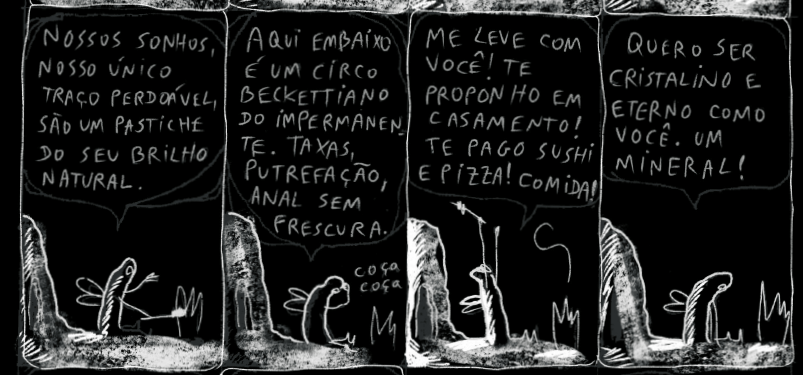 NOSSOS SONHOS,
NOSSO ÚNICO
TRAÇO PERDOÁVEL,
SÃO UM PASTICHE
DO SEU BRILHO
NATURAL.
AQUI EMBAIXO
É UM CIRCO
BECKETTIANO
DO IMPERMANEN_
TE. TAXAS,
PUTREFAÇÃO,
ANAL SEM
FRESCURA.
COÇA
COÇA
ME LEVE COM
VOCÊ! TE
PROPONHO EM
CASAMENTO!
TE PAGO SUSHI
E PIZZA! COMIDA!
QUERO SER
CRISTALINO E
ETERNO COMO
VOCÊ. UM
MINERAL!